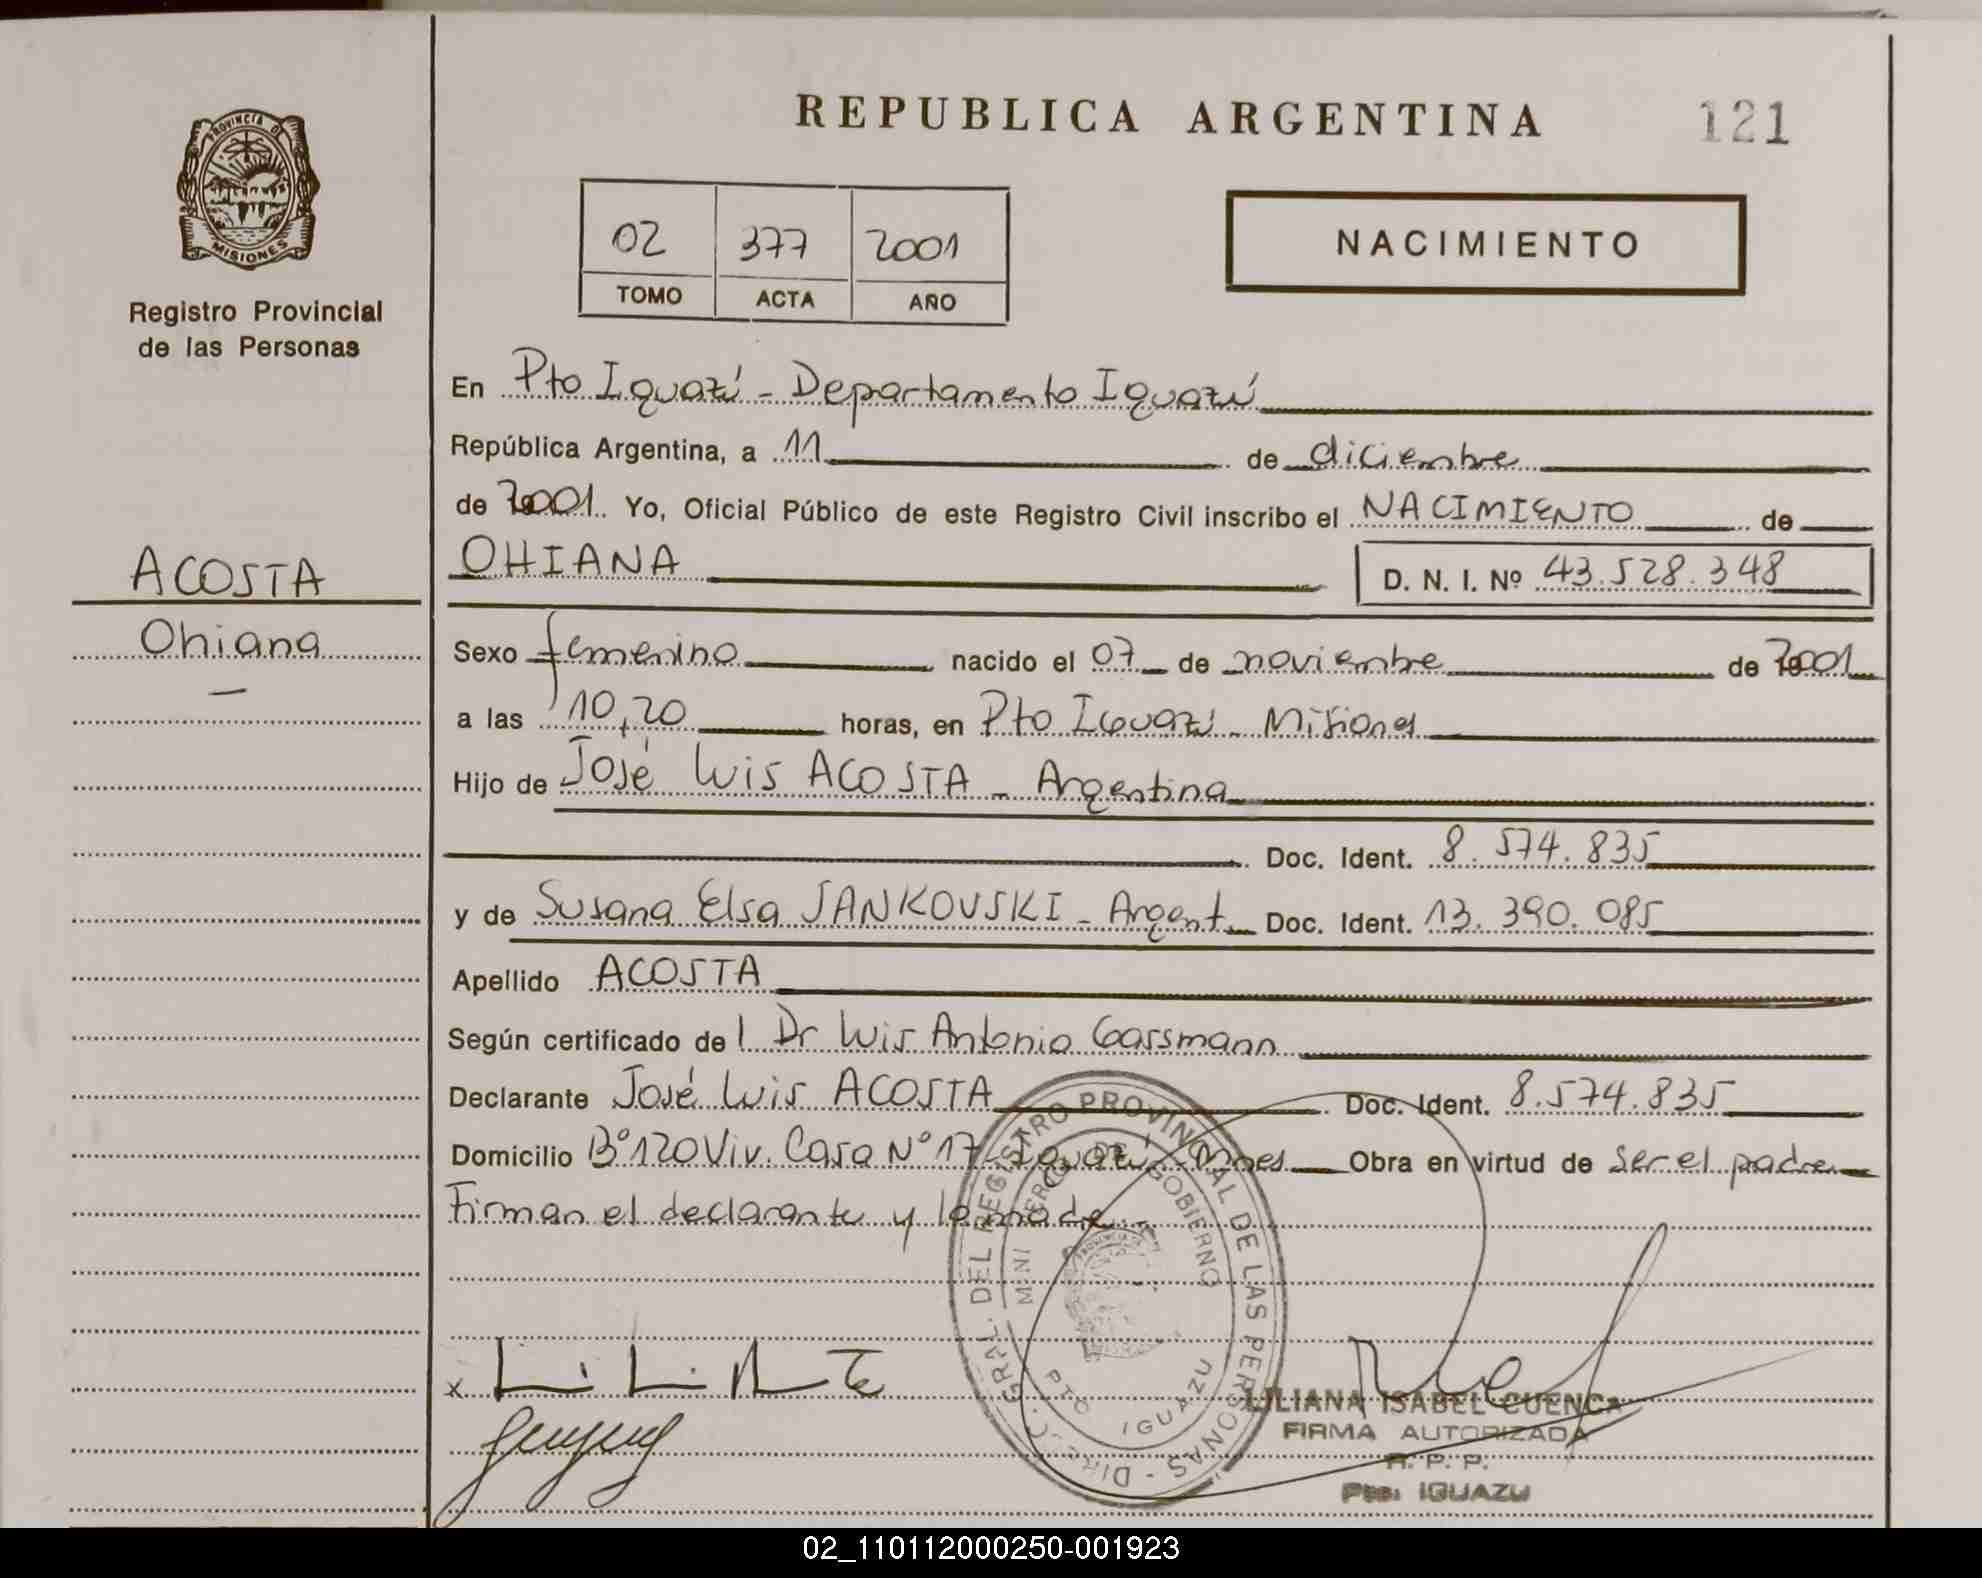 PROVINCIA DE
MISIONES
Registro Provincial
de las Personas
ACOSTA
Ohiana
—
REPUBLICA ARGENTINA
121
02 377 2001
TOMO ACTA AÑO
NACIMIENTO
En Pto Iguazú - Departamento Iguazú
República Argentina, a 11 de diciembre
de 2001. Yo, Oficial Público de este Registro Civil inscribo el NACIMIENTO de
OHIANA D. N. I. Nº 43.528.348
Sexo femenino nacido el 07 de noviembre de 2001
a las 10,20 horas, en Pto Iguazú - Misiones
Hijo de José Luis ACOSTA - Argentina
Doc. Ident. 8.574.835
y de Susana Elsa SANKOVSKI - Argent. Doc. Ident. 13.390.085
Apellido ACOSTA
Según certificado del Dr Luis Antonio Gassmann
Declarante José Luis ACOSTA Doc. Ident. 8.574.835
Domicilio Bº 120 Viv. Casa Nº 17 - Iguazú - Mnes Obra en virtud de ser el padre
Firman el declarante y la madre.
DIRECC. GRAL. DEL REGISTRO PROVINCIAL DE LAS PERSONAS -
MINISTERIO DE GOBIERNO
PTO IGUAZU
x
LILIANA ISABEL CUENCA
FIRMA AUTORIZADA
R. P. P.
Pto. IGUAZU
02_110112000250-001923